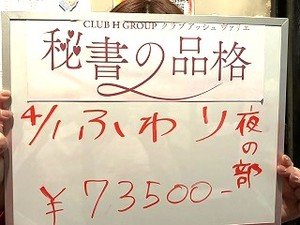 CLUB H GROUP クラブアッシュヴァリエ
秘書の品格
4/1 ふわり 夜の部
¥73500-